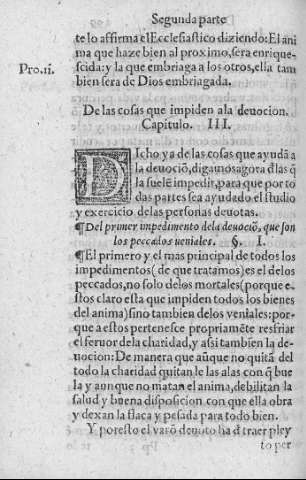 Segunda parte
te lo affirma el Ecclesiastico diziendo: El ani
ma que haze bien al proximo, sera enrique-
Pro.11.
scida: y la que embriaga a los otros, ella tam
bien sera de Dios embriagada.
De las cosas que impiden ala deuocion.
Capitulo. III.
DIcho ya de las cosas que ayudã a
la deuociõ, digamos agora d̃las q̃
la suelẽ impedir, para que por to
das partes sea ayudado el studio
y exercicio de las personas deuotas.
¶Del primer impedimento dela deuociõ, que son
los peccados veniales. §. I.
¶El primero y el mas principal de todos los
impedimentos (de que tratamos) es el delos
peccados, no solo delos mortales (porque e-
stos claro esta que impiden todos los bienes
del anima) sino tambien delos veniales: por-
que a estos pertenesce propriamẽte resfriar
el feruor dela charidad, y assi tambien la de-
uocion: De manera que aũque no quitã del
todo la charidad quitanle las alas con q̃ bue
la y aunque no matan el anima, debilitan la
salud y buena disposicion con que ella obra
y dexan la flaca y pesada para todo bien.
Y por esto el varõ deuoto ha d̃ traer pley
to per